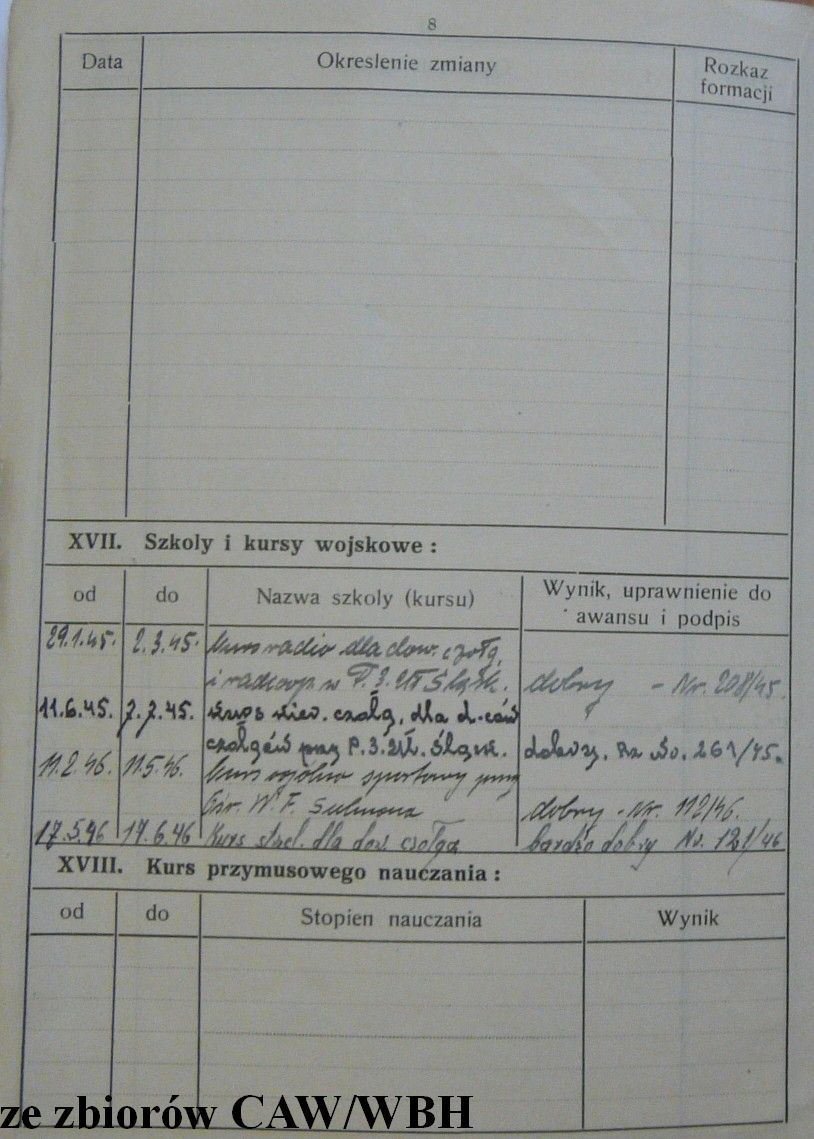 8
Data Okreslenie zmiany Rozkaz formacji
XVII. Szkoly i kursy wojskowe :
od do Nazwa szkoly (kursu) Wynik, uprawnienie do awansu i podpis
29.1.45. 2.3.45. kurs radio dla dow. czołg.
i radioop. w P. 3. Uł Śląsk. dobry - Nr. 208/45.
11.6.45. 7.7.45. kurs kier. czołg. dla d-ców
czołgów przy P. 3. Uł. Śląsk. dobry. Rz 261/45.
11.2.46. 11.5.46. kurs ogólno sportowy przy
Ośr. W. F. Sulmona dobry - Nr. 112/46.
17.5.46 17.6.46 Kurs strzel. dla dow. czołga bardzo dobry Nr. 121/46
XVIII. Kurs przymusowego nauczania :
od do Stopien nauczania Wynik
ze zbiorów CAW/WBH